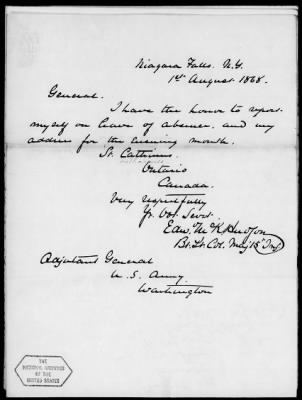 Niagara Falls. N.Y.
1st August. 1868.
General.
I have the honor to report
myself on leave of absence, and my
address for the ensuing month.
St. Catharines
Ontario
Canada.
Very respectfully
Yr. Obt. Servt.
Edw. McK Hudson
Bt. Lt. Col. Maj 15th Inf
Adjutant General
U. S. Army
Washington
THE
NATIONAL ARCHIVES
OF THE
UNITED STATES